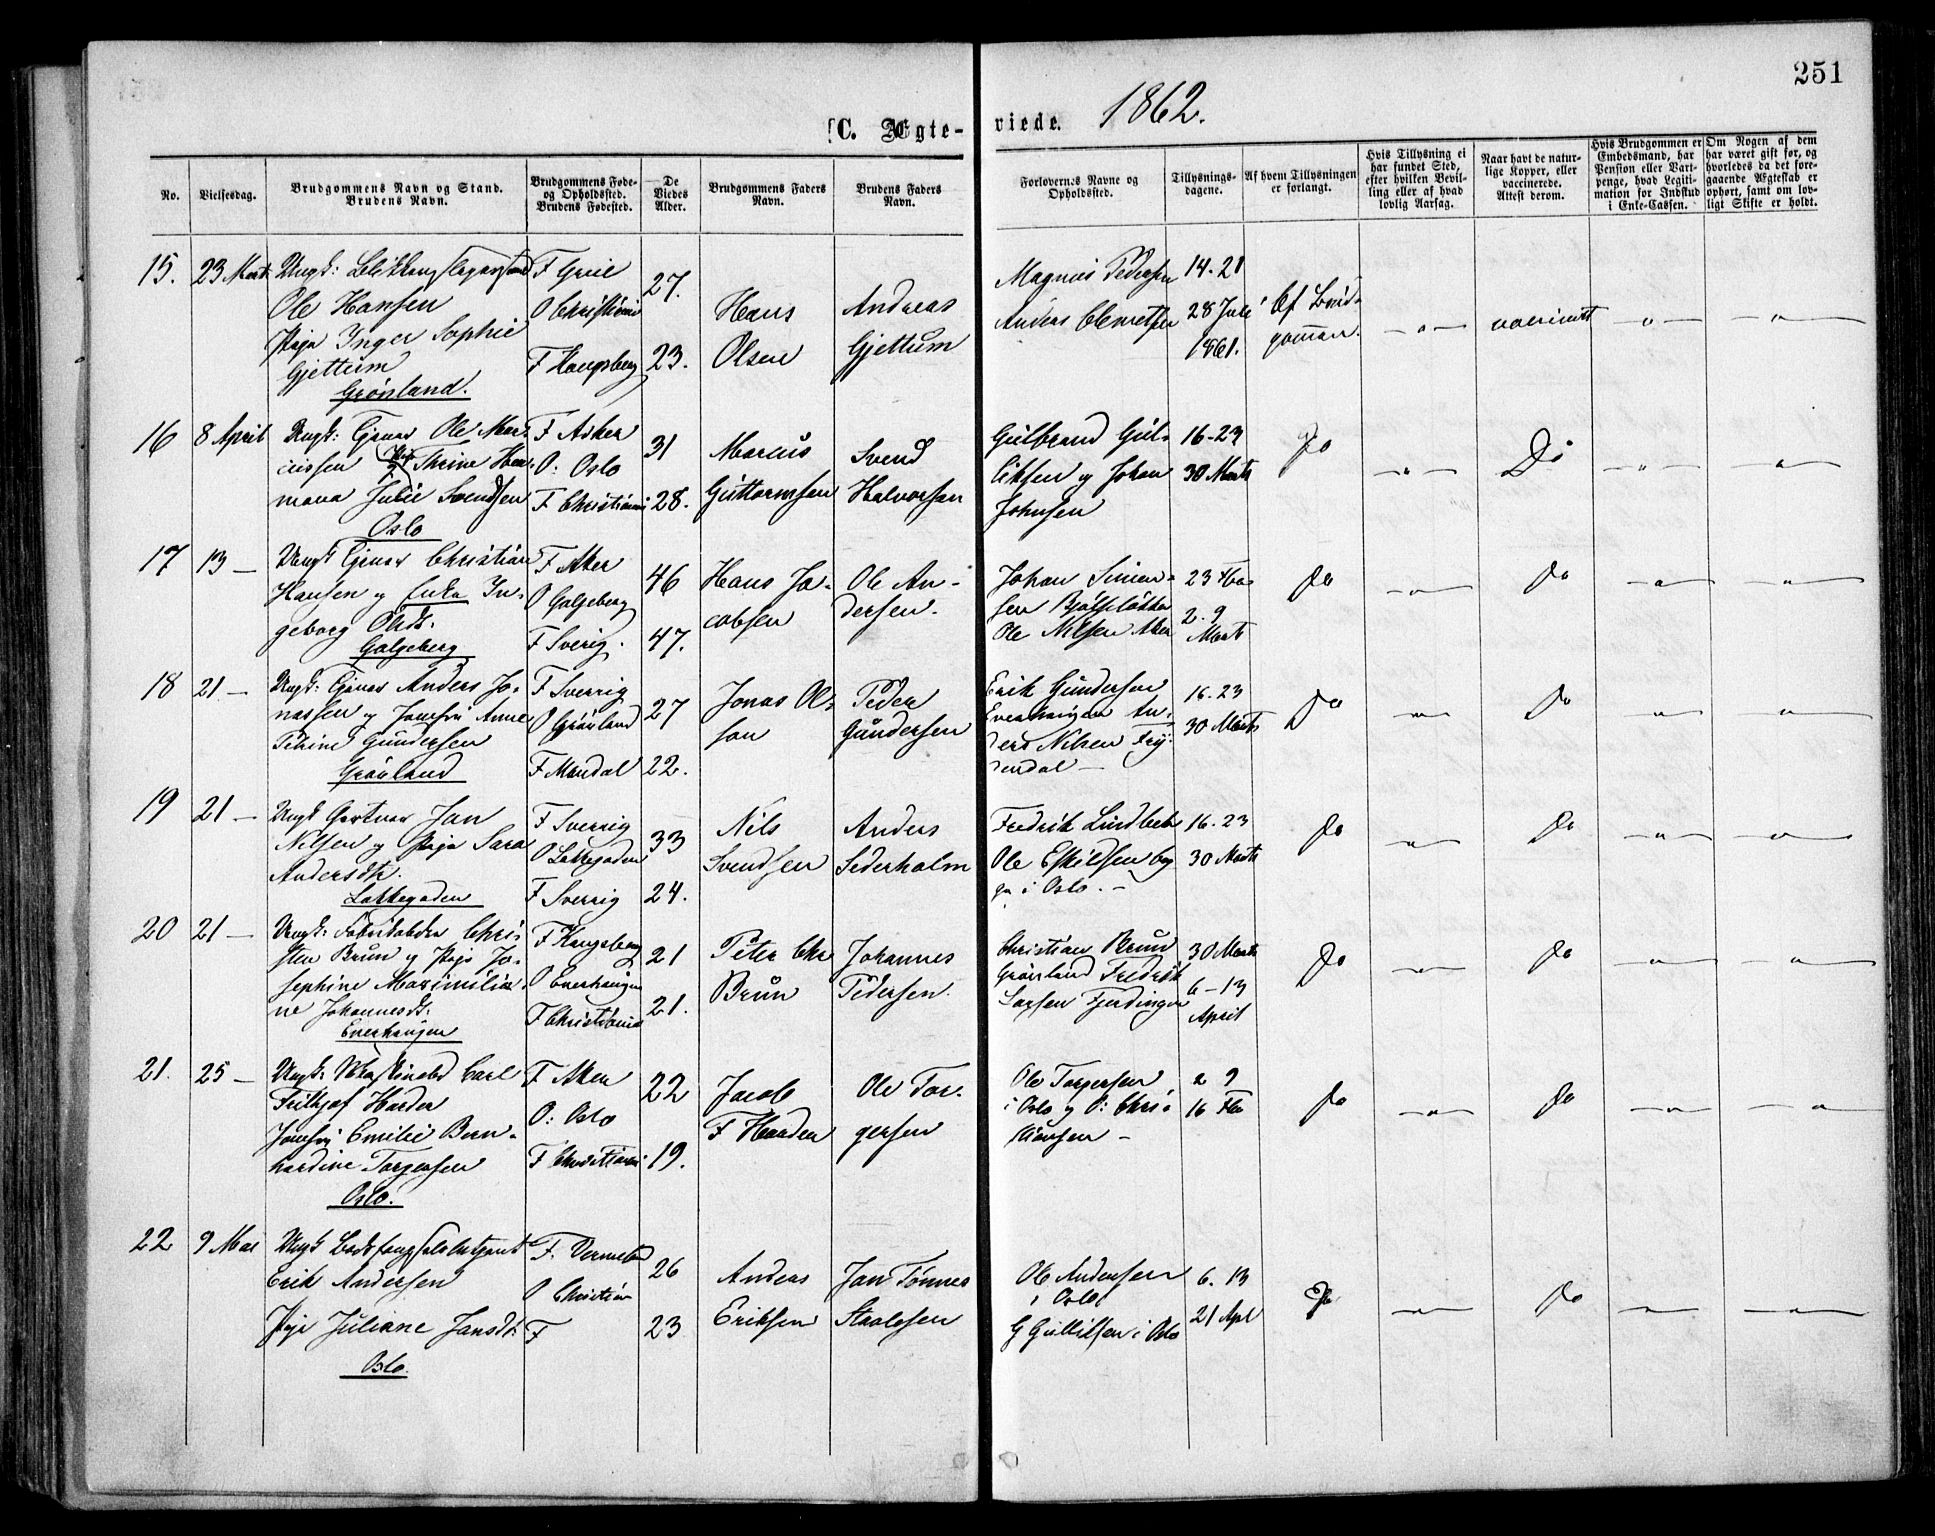 251
1862.
C. Ægte-
viede.
No.
Vielsesdag.
Brudgommens Navn og Stand.
Brudens Navn.
Brudgommens Føde-
og Opholdssted.
Brudens Fødested.
De
Viedes
Alder.
Brudgommens Faders
Navn.
Brudens Faders
Navn.
Forlovernes Navne og
Opholdssted.
Tillysnings-
dagene.
Af hvem Tillysningen
er forlangt.
Hvis Tillysning ei
har fundet Sted,
efter hvilken Bevil-
ling eller af hvad
lovlig Aarsag.
Naar havt de natur-
lige Kopper, eller
vaccinerede.
Attest derom.
Hvis Brudgommen er
Embedsmand, har
Pension eller Vart-
penge, hvad Legiti-
mation for Indskud
i Enke-Cassen.
Om Nogen af dem
har været gift før, og
hvorledes da det fore-
gaaende Ægteskab er
ophørt, samt om lov-
ligt Skifte er holdt.
15.
23 Mart.
Ungk:
Ole Hansen
Pige Inger Sophie
Gjettum
Grønland.
F
O Christiania
F Kongsberg
27.
23.
Hans
Olsen
Andreas
Gjettum
Magnus Pedersen
Anders
14-21
28 Juli
1861.
Af Brud-
gommen.
16
8 April
Ungk: Tjener Ole Mar-
cussen Thrine Her-
mana Julie Svendsen
Oslo
F Asker
O: Oslo
F Christiania
31
28.
Marcus
Guttormsen
Svend
Halvorsen
Gulbrand Gul-
liksen og Johan
Johnsen
16-23
30 Marts
Do
Do
17
13 —
Ungk Tjener Christian
Hansen og Enke In-
geborg Olsdt.
Galgeberg
F Aker
O Galgeberg
F Sverig.
46
47.
Hans Ja-
cobsen
Ole An-
dersen.
Johan Simen-
sen
Ole Nilsen Aker
23 Feb
2. 9
Marts
Do
Do
18
21 —
Ungk: Tjener Anders Jo-
nassen og Jomfru Anne
Gundersen
Grønland
F Sverrig
O Grønland
F Mandal
27
22.
Jonas Ol-
sen
Peder
Gundersen
Erik Gundersen
Enerhaugen An-
ders Nilsen Fry-
dendal —
16.23
30 Marts
Do
Do
19
21 —
Ungk Gartner Jan
Nilsen og Pige Sara
Andersdt.
Lakkegaden
F Sverrig
O Lakkegaden
F Sverrig
33
24.
Nils
Svendsen
Anders
Sederholm
Fredrik
Ole Eskildsen beg
ge i Oslo. —
16.23
30 Marts
Do
Do
20
21 —
Ungk: Fabrikarbeder Chri-
sten Brun og Pige Jo-
sephine Maximilia-
ne Johannesdt:
Enerhaugen
F Kongsberg
O Enerhaugen
F Christiania
21
21.
Peter Chr
Brun
Johannes
Pedersen.
Christian Brun
Grønland Fredrik
Larsen Fjerdingen
30 Marts
6-13
April
Do
Do
21.
25 —
Ungk: Maskinarbd Carl
Frithjof Harder
Jomfru Emilie Bern-
hardine Torgersen
Oslo.
F Aker
O: Oslo
F Christiania
22
19.
Jacob
F Harder
Ole Tor-
gersen
Ole Torgersen
i Oslo og O: Chri-
stiansen —
2 9
16 Feb
Do
Do
22
9 Mai
Ungk
Erik Andersen
Pige Juliane Jansdt.
Oslo.
F. Vermeland
O Christian
F
26
23
Anders
Eriksen
Jan Tønnes
Staalesen
Ole Andersen
i Oslo
G Gulliksen i Oslo
6. 13
21 Apl
Do
Do